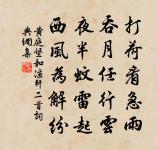 打荷看急雨
吞月任行雲
夜半蚊雷起
西風為解紛
黃庭堅和涼軒二首詞
典網集